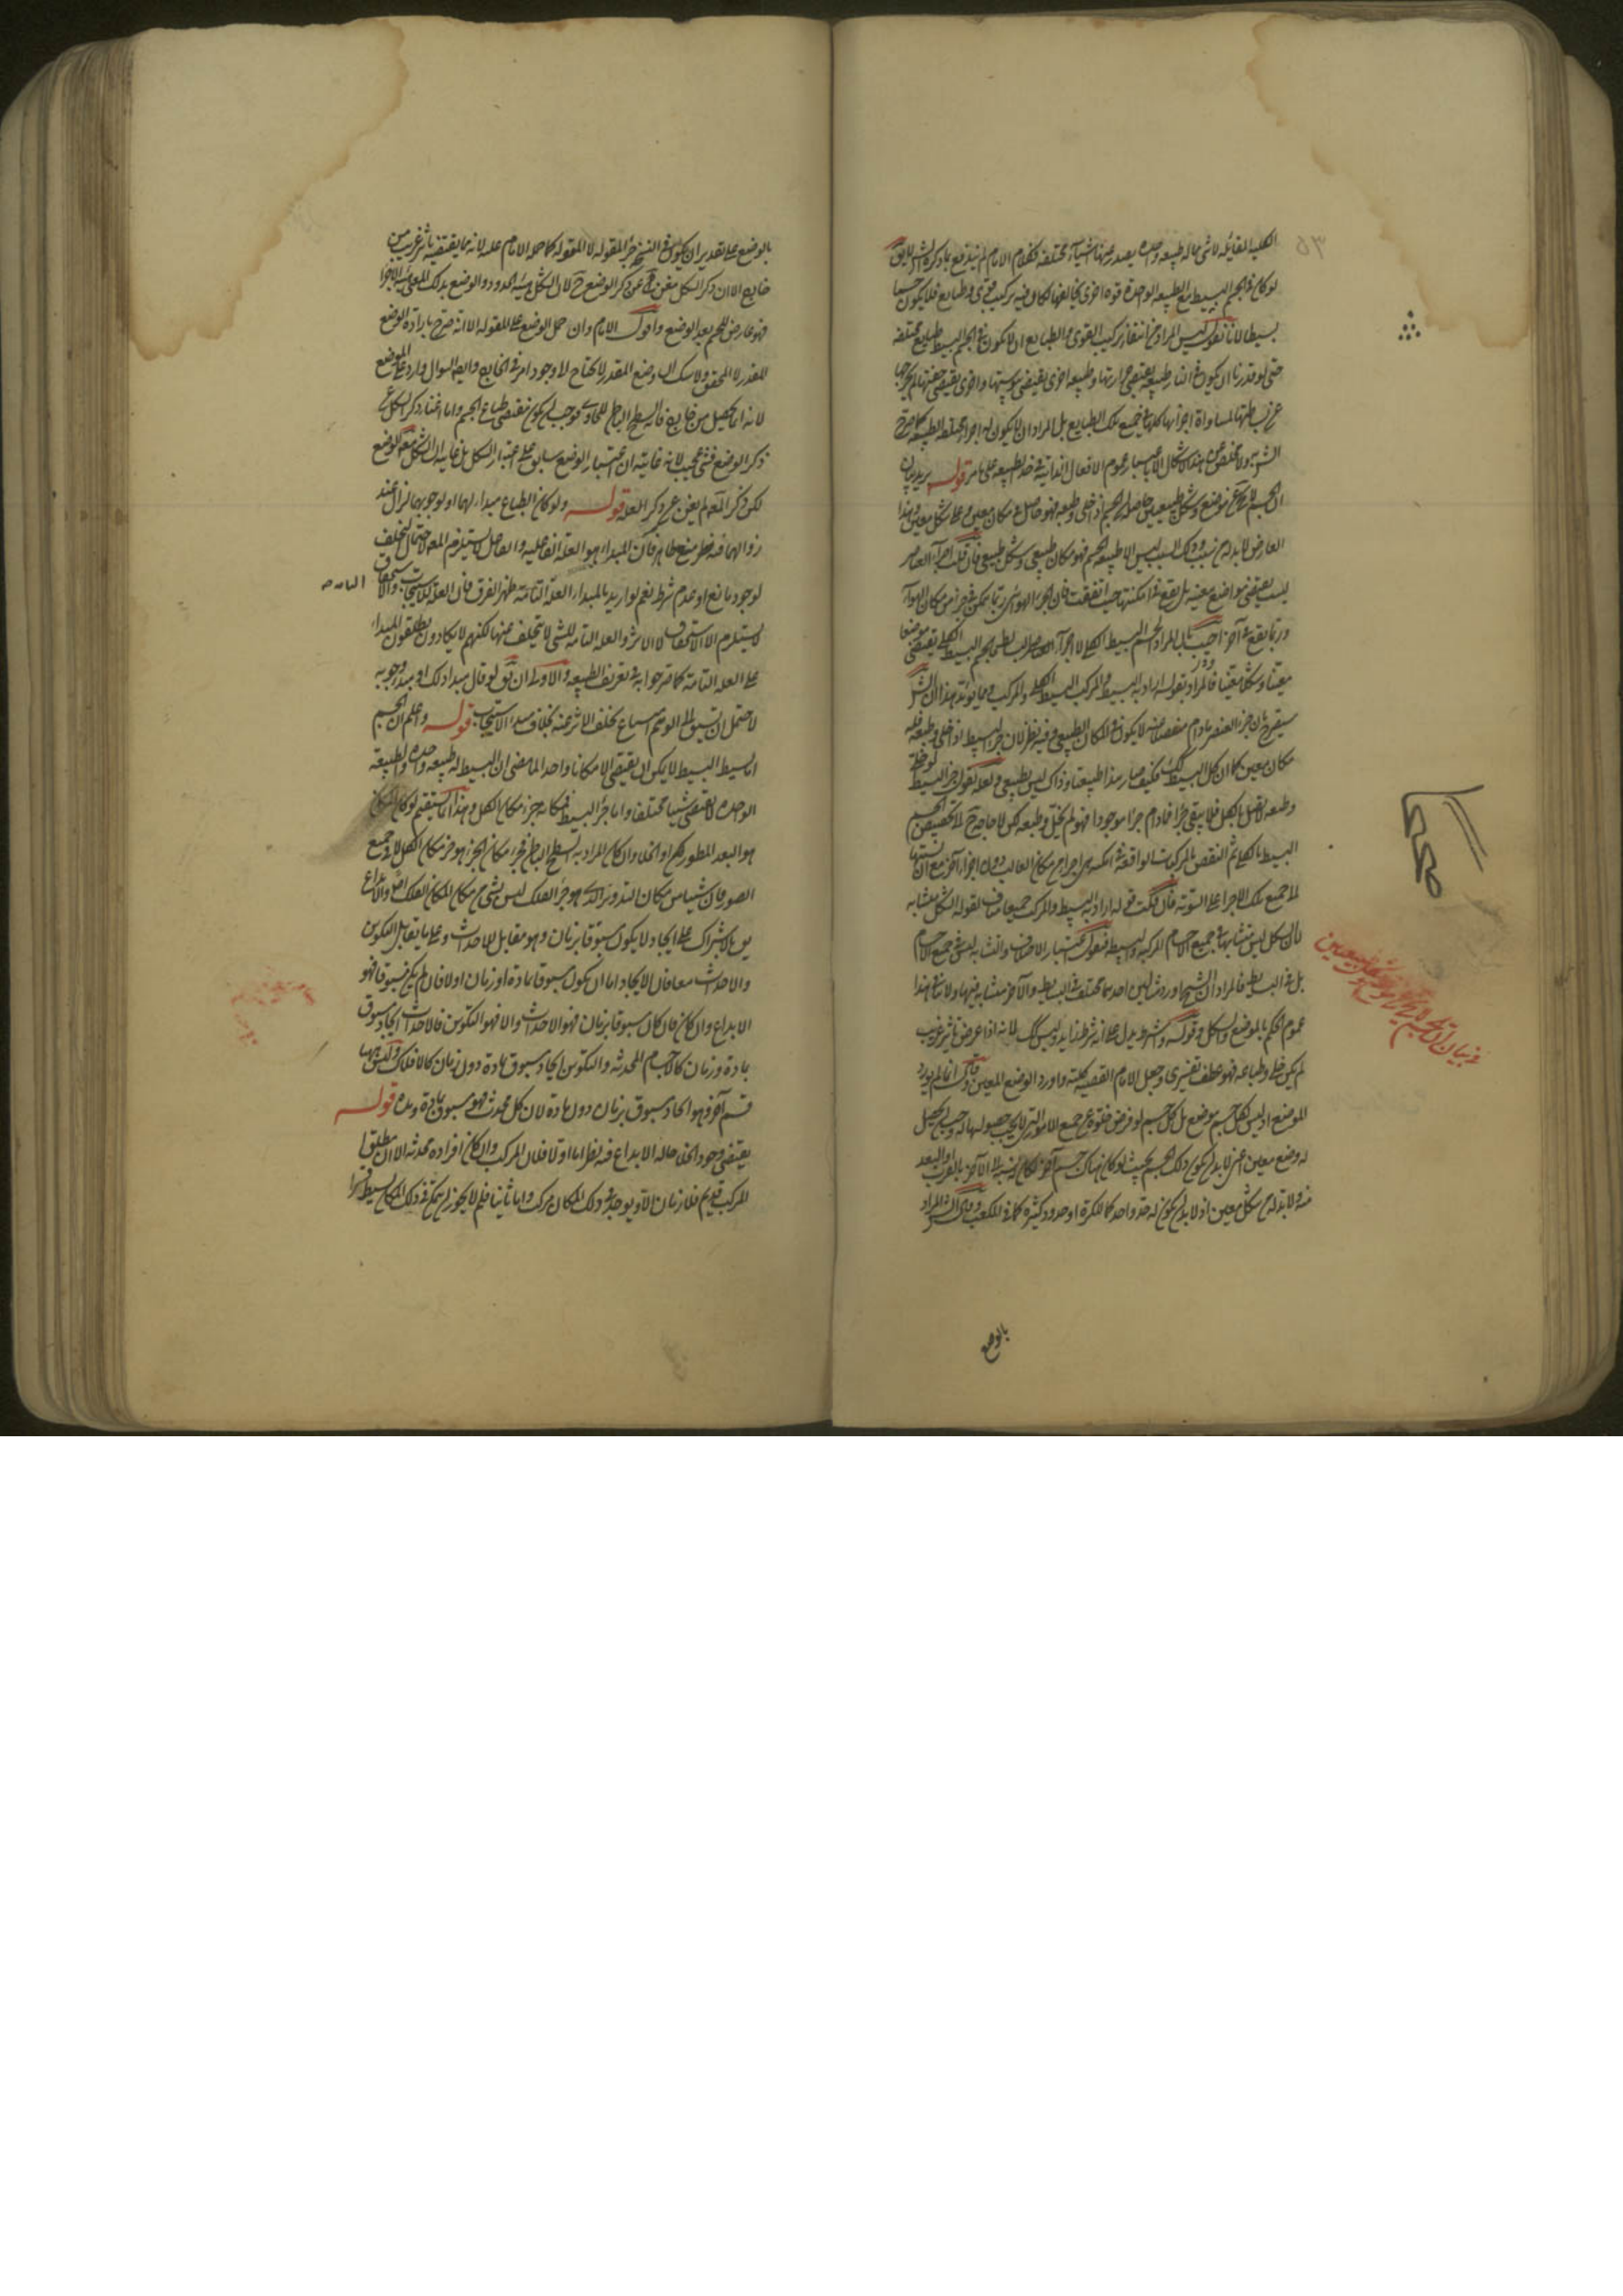 الكلية القائلة لا شئ مما له طبيعة واحدة يصدر عنها اشياء مختلفة فكلام الامام لم يندفع بما ذكره الش لا يق
لو كان في الجسم البسيط مع الطبيعة الواحدة قوة اخرى يخالفها لكان فيه تركيب قوى وطبايع فلا يكون جسما
بسيطا لانا نقول ليس المراد من انتفاء تركيب القوى والطبايع ان لا يكون في الجسم البسيط طبايع مختلفة
حتى لو قدرنا ان يكون في النار طبيعة يقتضي حرارتها وطبيعة اخرى يقتضي يبوستها واخرى يقتضي خفتها لم يخرجها
عن بساطتها لمساواة اجزائها كلها في جميع تلك الطبايع بل المراد ان لا يكون له اجزاء مختلفة الطبيعة كما صرح
الش به ولا مخلص عن هذا الاشكال الا باعتبار عموم الافعال الذاتية في حد الطبيعة على ما مر قوله يريد بيان
ان الجسم لا يخ عن موضع وشكل طبيعيين حاصله ان الجسم اذا خلى وطبعه فهو حاصل في مكان معين وعلى شكل معين وهذا
العارض لا بد له من سبب وذلك السبب ليس الا طبيعة الجسم فهو مكان طبيعي وشكل طبيعي فان قلت اجزاء العناصر
ليست يقتضي مواضع معينة بل تقع في امكنتها حيث اتفقت فان الجزء الهوائي ربما يتمكن في جزء من مكان الهواء
وربما يقع في آخر اجيب بان المراد الجسم البسيط الكلي لا اجزاء العناصر
معينا وشكلا معينا فالمراد بقوله اراد به البسيط والمركب البسيط الكلي والمركب ومما يؤيد هذا ان الش
سيصرح بان جزء العنصر ما دام منفصلا عنه لا يكون في المكان الطبيعي وفيه نظر لان جزء البسيط اذا خلى وطبعه فله
مكان معين كما ان كل البسيط كك فكيف صار هذا طبيعيا وذاك ليس بطبيعي ولعله يقول جزء البسيط
وطبعه لاتصل بالكل فلا يبقى جزءا فما دام جزءا موجودا فهو لم يخل وطبعه لكن لا حاجة ح لتخصيص الجسم
البسيط بالكلي ثم النقض بالمركبات الواقعة في امكنة
الى جميع تلك الاجزاء على السوية فان قلت قوله اراد به البسيط والمركب جميعا مناف لقوله الشكل متشابه
لان الشكل ليس متشابها في جميع اجسام المركبة والبسيطة فنقول اعتبار الاختلاف والتشابه ليس في جميع الاجسام
بل في البسايط فالمراد ان الشيخ اورد مثالين احدهما مختلف في البسايط والآخر متشابه فيها ولا ينافي هذا
عموم الحكم بالموضع والشكل وقوله وشرط يدل على انه شرط زايد وليس كك لانه اذا عرض تاثير غريب
لم يكن خلى وطباعه فهو عطف تفسيري وجعل الامام القضية كلية واورد الوضع المعين وقال انما لم يورد
الموضع اذ ليس لكل جسم موضع بل كل جسم لو فرض خلوه عن جميع الامور التي لا يجب حصولها له وجب ان يحصل
له وضع معين اعني لا بد ان يكون ذلك الجسم بحيث لو كان هناك جسم آخر لكان نسبته الى الآخر بالقرب او البعد
منه ولا بد له من شكل معين اذ لا بد ان يكون له حد واحد كما للكرة او حدود كثيرة كما في المكعب
بالوضع
في بيان ان الجسم لا يخ عن موضع وشكل طبيعيين
بالوضع على تقدير ان يكون في النسخة جزء المقولة لا المقولة كما حمله الامام عليه لانه مما يقتضيه تاثير غريب من
خارج الا ان ذكر الشكل مغن ح عن ذكر الوضع لان الشكل هيئة الحدود والوضع بذلك المعنى هيئة الاجزاء
فهو عارض للجسم بعد الوضع واقول الامام وان حمل الوضع على المقولة الا انه صرح بارادة الوضع
المقدر لا المحقق ولا شك ان الوضع المقدر لا يحتاج الى وجود امر في الخارج وايضا السؤال وارد على الموضع
لانه انما يحصل من خارج فانه السطح الباطن للحاوي فوجب ان لا يكون بمقتضى طباع الجسم واما اغناء ذكر الشكل عن
ذكر الوضع فشئ عجيب لانه غايته ان اعتبار الوضع سابق على اعتبار الشكل بل غايته ان الشكل مع الوضع
لكن ذكر المع لم يغن عن ذكر العلة قوله ولو كان الطباع مبداء لهما او لوجوبهما لزال عند
زوالهما فيه نظر منع ظاهر فان المبداء هو العلة الفاعلية والفاعل لا يستلزم المعلول لاحتمال التخلف
لوجود مانع او عدم شرط نعم لو اريد بالمبداء العلة التامة ظهر الفرق فان العلة للاستيجاب والاستحقاق
لا يستلزم الا الاستحقاق لا الاثر والعلة التامة للشئ لا يتخلف عنها لكنهم لا يكادون يطلقون المبداء
على العلة التامة كما صرحوا به في تعريف الطبيعة والاولى ان يق لو قال مبدأ ذلك او مبدأ وجوبه
لاحتمل ان يسبق الى الوهم امتناع تخلف الاثر عنه بخلاف مبداء الاستيجاب قوله واعلم ان الجسم
اما بسيط البسيط لا يمكن ان يقتضي الا مكانا واحدا لما مضى ان البسيط له طبيعة واحدة والطبيعة
الواحدة لا تقتضي شيئا مختلفا واما جزء البسيط فمكانه جزء مكان الكل وهذا انما يستقيم لو كان المكان
هو البعد المفطور او الخلاء وان كان المراد به السطح الباطن فجزء مكان الجزء هو جزء مكان الكل لا في جميع
الصور فان شيئا من مكان التدوير الذي هو جزء الفلك ليس بشئ من مكان الفلك اصلا والابداع
يق بالاشتراك على ايجاد لا يكون مسبوقا بزمان وهو مقابل للاحداث وعلى ما يقابل التكوين
والاحداث معا فان الايجاد اما ان يكون مسبوقا بمادة او زمان او لا فان لم يكن مسبوقا فهو
الابداع وان كان فان كان مسبوقا بزمان فهو الاحداث والا فهو التكوين فالاحداث ايجاد مسبوق
بمادة وزمان كالاجسام المحدثة والتكوين ايجاد مسبوق بمادة دون زمان كالافلاك وليس ههنا
قسم آخر وهو ايجاد مسبوق بزمان دون مادة لان كل محدث فهو مسبوق بمادة ومدة قوله
يقتضي وجود الخلاء حالة الابداع فيه نظر اما اولا فلان المركب وان كان افراده محدثة الا ان مطلق
المركب قديم فلا زمان الا ويوجد في ذلك المكان مركب واما ثانيا فلم لا يجوز ان يتمكن في ذلك المكان بسيط قسرا